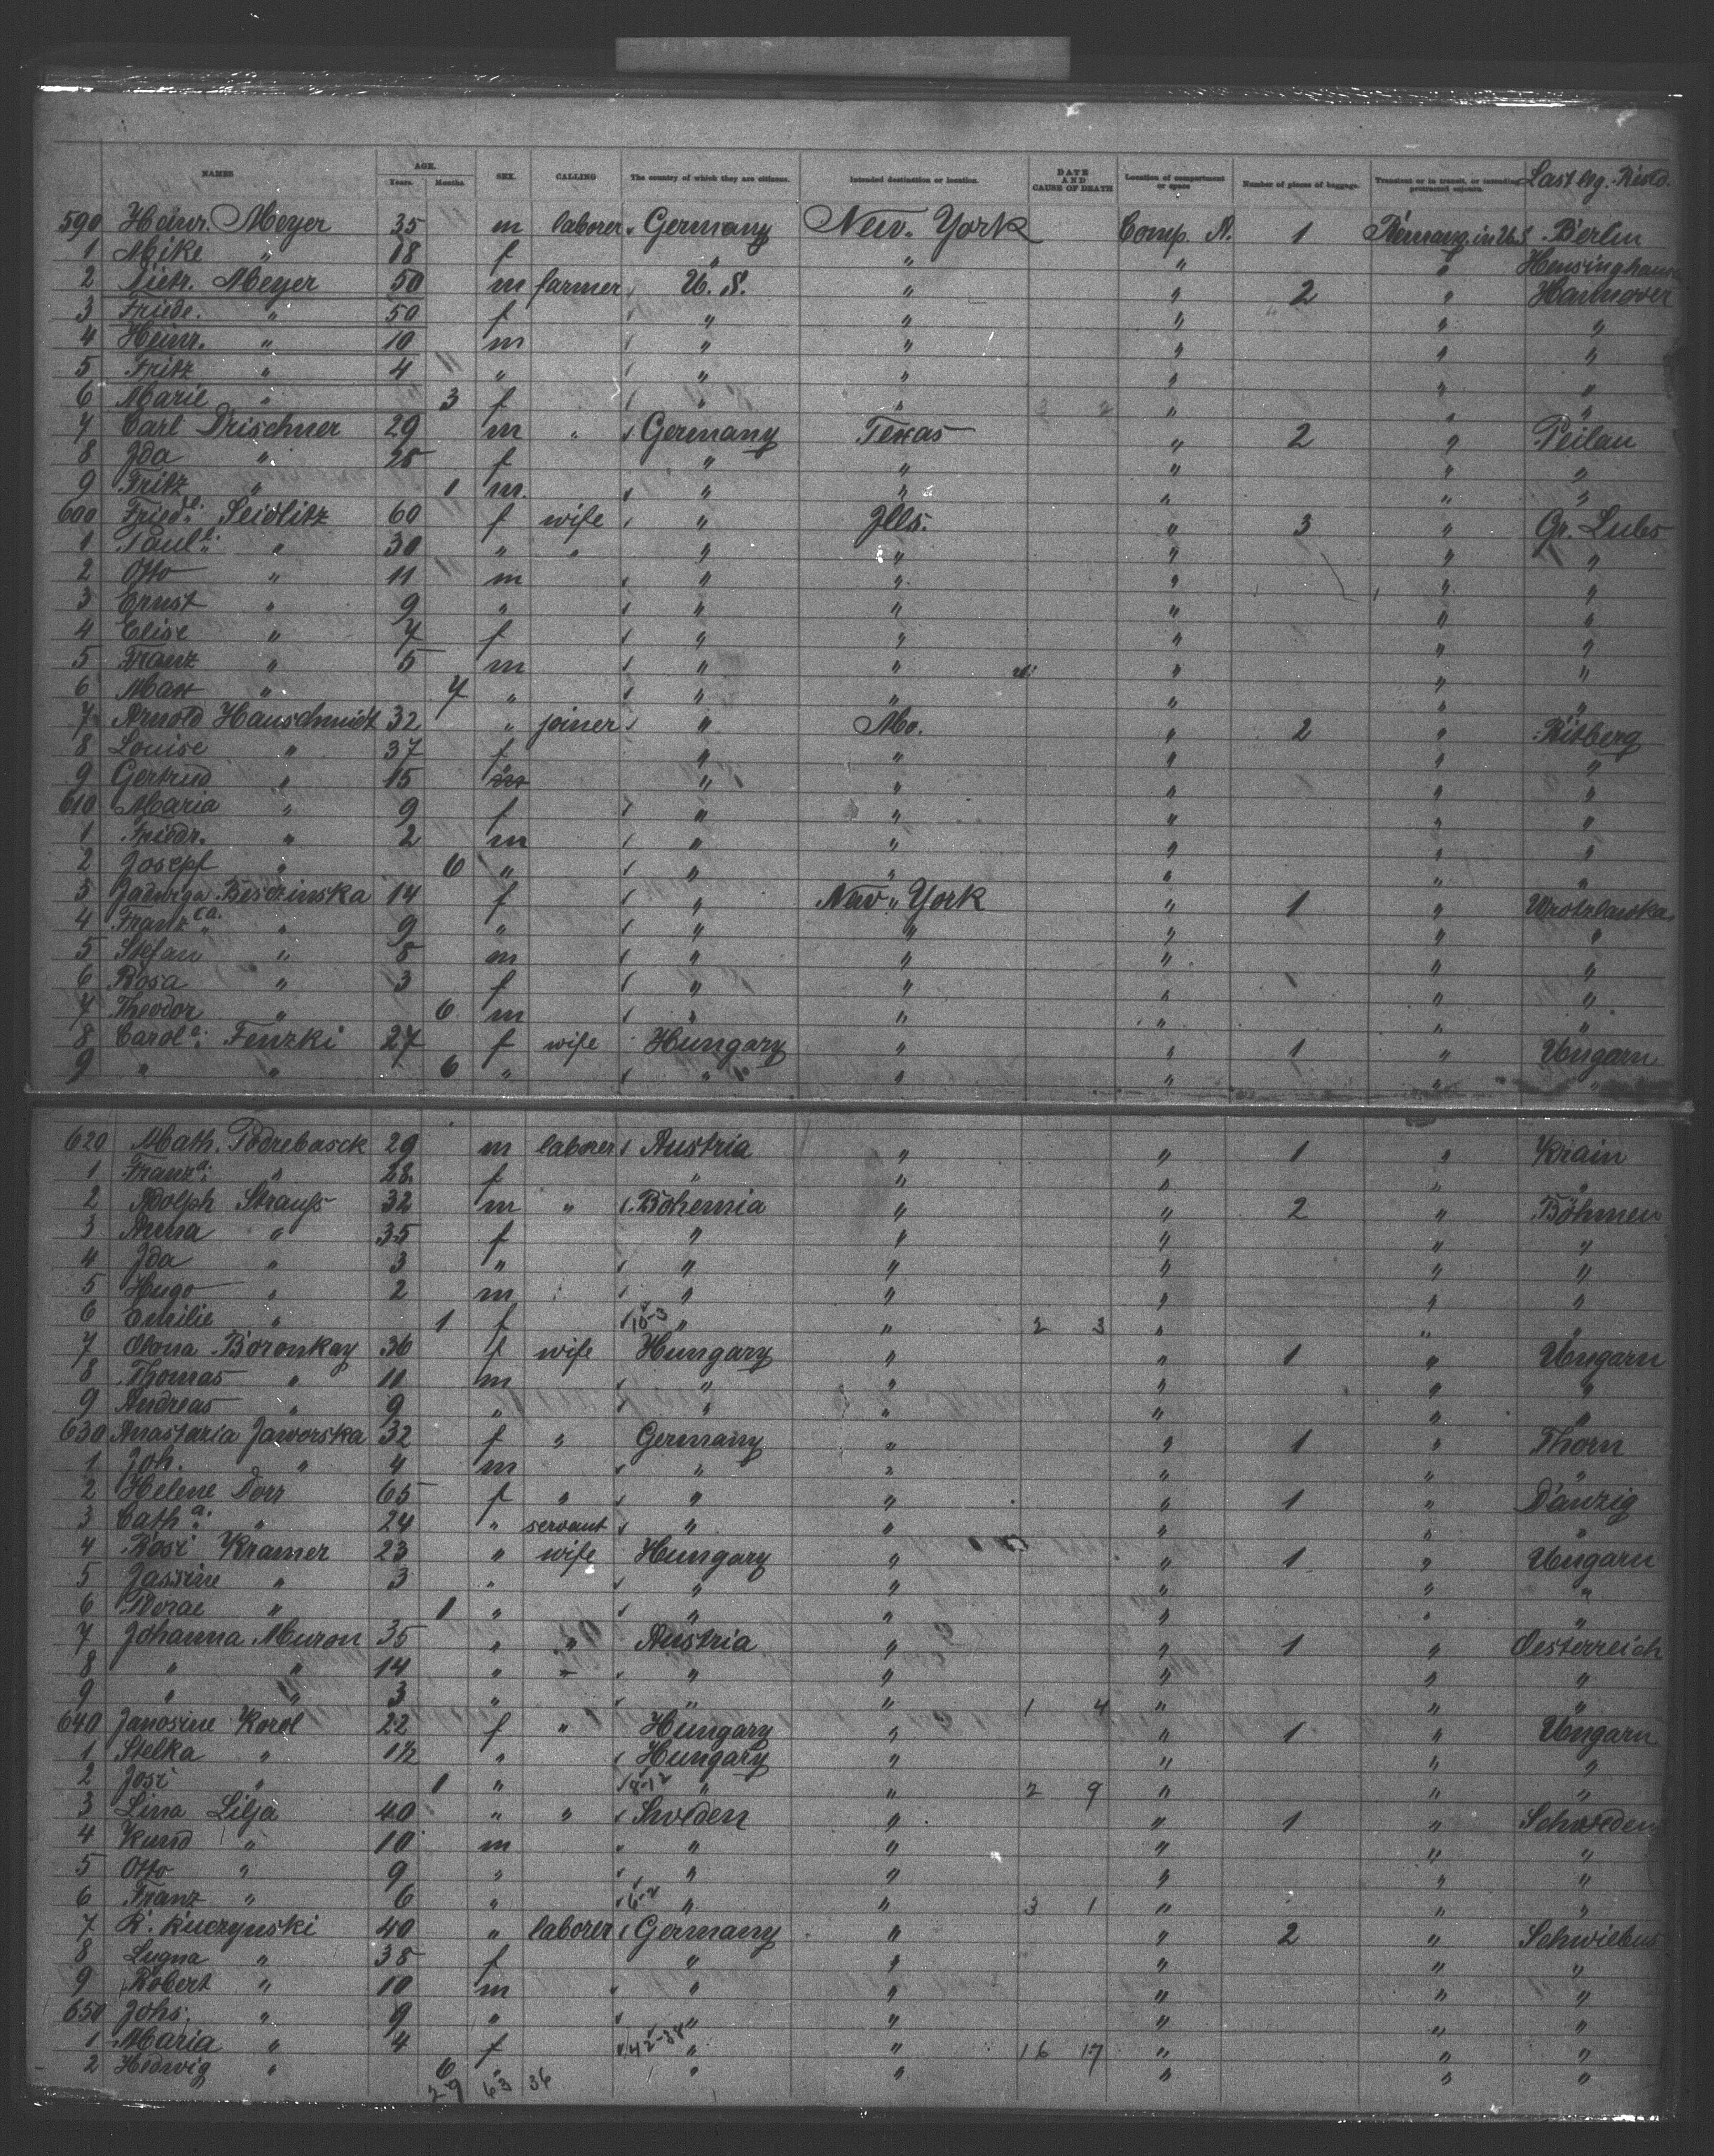 NAMES AGE. Years. Months. SEX. CALLING The country of which they are citizens. Intended destination or location. DATE AND CAUSE OF DEATH Location of compartment or space Number of pieces of baggage. Transient or in transit, or intending protracted sojourn. Last leg. Resid.
590 Heinr. Meyer 35 m laborer Germany New-York Comp. A. 1 Remang. in U.S. Berlin
1 Mike " 18 f " " " "
2 Dietr. Meyer 50 m farmer U.S. " " 2 " Hannover
3 Friede. " 50 f " " " " "
4 Heinr. " 10 m " " " " "
5 Fritz " 4 " " " " " "
6 Marie " 3 f " " " " "
7 Carl Drischner 29 m " Germany Texas " 2 " Peilau
8 Ida " 25 f " " " " "
9 Fritz " 1 m. " " " " "
600 Friedl. Seidlitz 60 f wife " Ills. " 3 " Gr. Lubs
1 Paull. " 30 " " " " " " "
2 Otto " 11 m " " " " "
3 Ernst " 9 " " " " " "
4 Elise " 7 f " " " " "
5 Franz " 5 m " " " " "
6 Max " 7 " " " " " "
7 Arnold Hauschmidt 32 " joiner " Mo. " 2 " Ritberg
8 Louise " 37 f " " " " "
9 Gertrud " 15 " " " " " "
610 Maria " 9 f " " " " "
1 Friedr. " 2 m " " " " "
2 Josepf " 6 " " " " " "
3 Jadwiga Beschinska 14 f " New-York " 1 " Wrotzlawska
4 Franzca. " 9 " " " " " "
5 Stefan " 8 m " " " " "
6 Rosa " 3 f " " " " "
7 Theodor " 6 m " " " " "
8 Carola. Fenzki 27 f wife Hungary " " 1 " Ungarn
9 " " 6 " " " " " "
620 Math. Podrebasck 29 m laborer Austria " " 1 " Krain
1 Franza. " 28. f " " " " "
2 Adolph Strauss 32 m " Bohemia " " 2 " Böhmen
3 Anna " 35 f " " " " "
4 Ida " 3 " " " " " "
5 Hugo " 2 m " " " " "
6 Emilie " 1 f 10-3 " " 2 3 " " "
7 Ilona Boronkay 36 f wife Hungary " " 1 " Ungarn
8 Thomas " 11 m " " " " "
9 Andreas " 9 " " " " " "
630 Anastazia Jaworska 32 f " Germany " " 1 " Thorn
1 Joh. " 4 m " " " " "
2 Helene Dorr 65 f " " " " 1 " Danzig
3 Catha. " 24 " servant " " " " "
4 Rosi Kramer 23 " wife Hungary " " 1 " Ungarn
5 Jassine " 3 " " " " " "
6 " 1 " " " " " "
7 Johanna Muron 35 " " Austria " " 1 " Oesterreich
8 " " 14 " " " " " " "
9 " " 3 " " " 1 4 " " "
640 Janosine Korel 22 f " Hungary " " 1 " Ungarn
1 Stelka " 1½ " Hungary " " " "
2 Josi " 1 " 8-12 " " 2 9 " " "
3 Lina Lilja 40 " " Sweden " " 1 " Schweden
4 Kund " 10 m " " " " "
5 Otto " 9 " " " " " "
6 Franz " 6 " 6-2 " " 3 1 " " "
7 R. Kuczynski 40 " laborer Germany " " 2 " Schwiebus
8 Lugna " 38 f " " " " "
9 Robert " 10 m " " " " "
650 Johs. " 9 " " " " " "
1 Maria " 4 f 42-38 " " 16 17 " " "
2 Hedwig " 6 " " " " " "
29 63 36